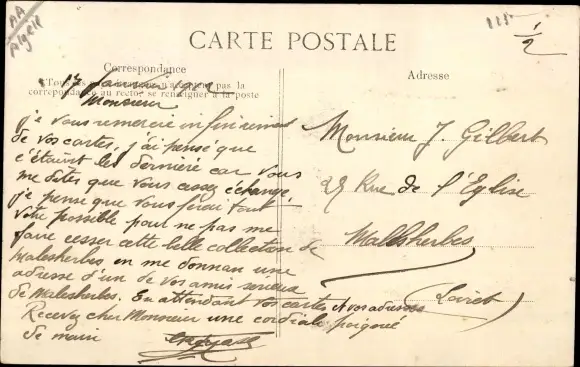 AA
Algérie
CARTE POSTALE
Correspondance
(Tous les pays étrangers n'acceptent pas la
correspondance au recto, se renseigner à la poste
Monsieur
je vous remercie infiniment
de vos cartes, j'ai pensé que
c'étaient les dernière car vous
me dites que vous cessez échange.
je pense que vous ferai tout
votre possible pour ne pas me
faire cesser cette belle collection de
Malesherbes en me donnan une
adresse d'un de vos amis serieux
de Malesherbes. En attendant vos cartes et vos adresses
Recevez cher Monsieur une cordiale poignée
de main
Adresse
Monsieur J. Gilbert
Rue de l'Eglise
Malesherbes
(Loiret)
1/2